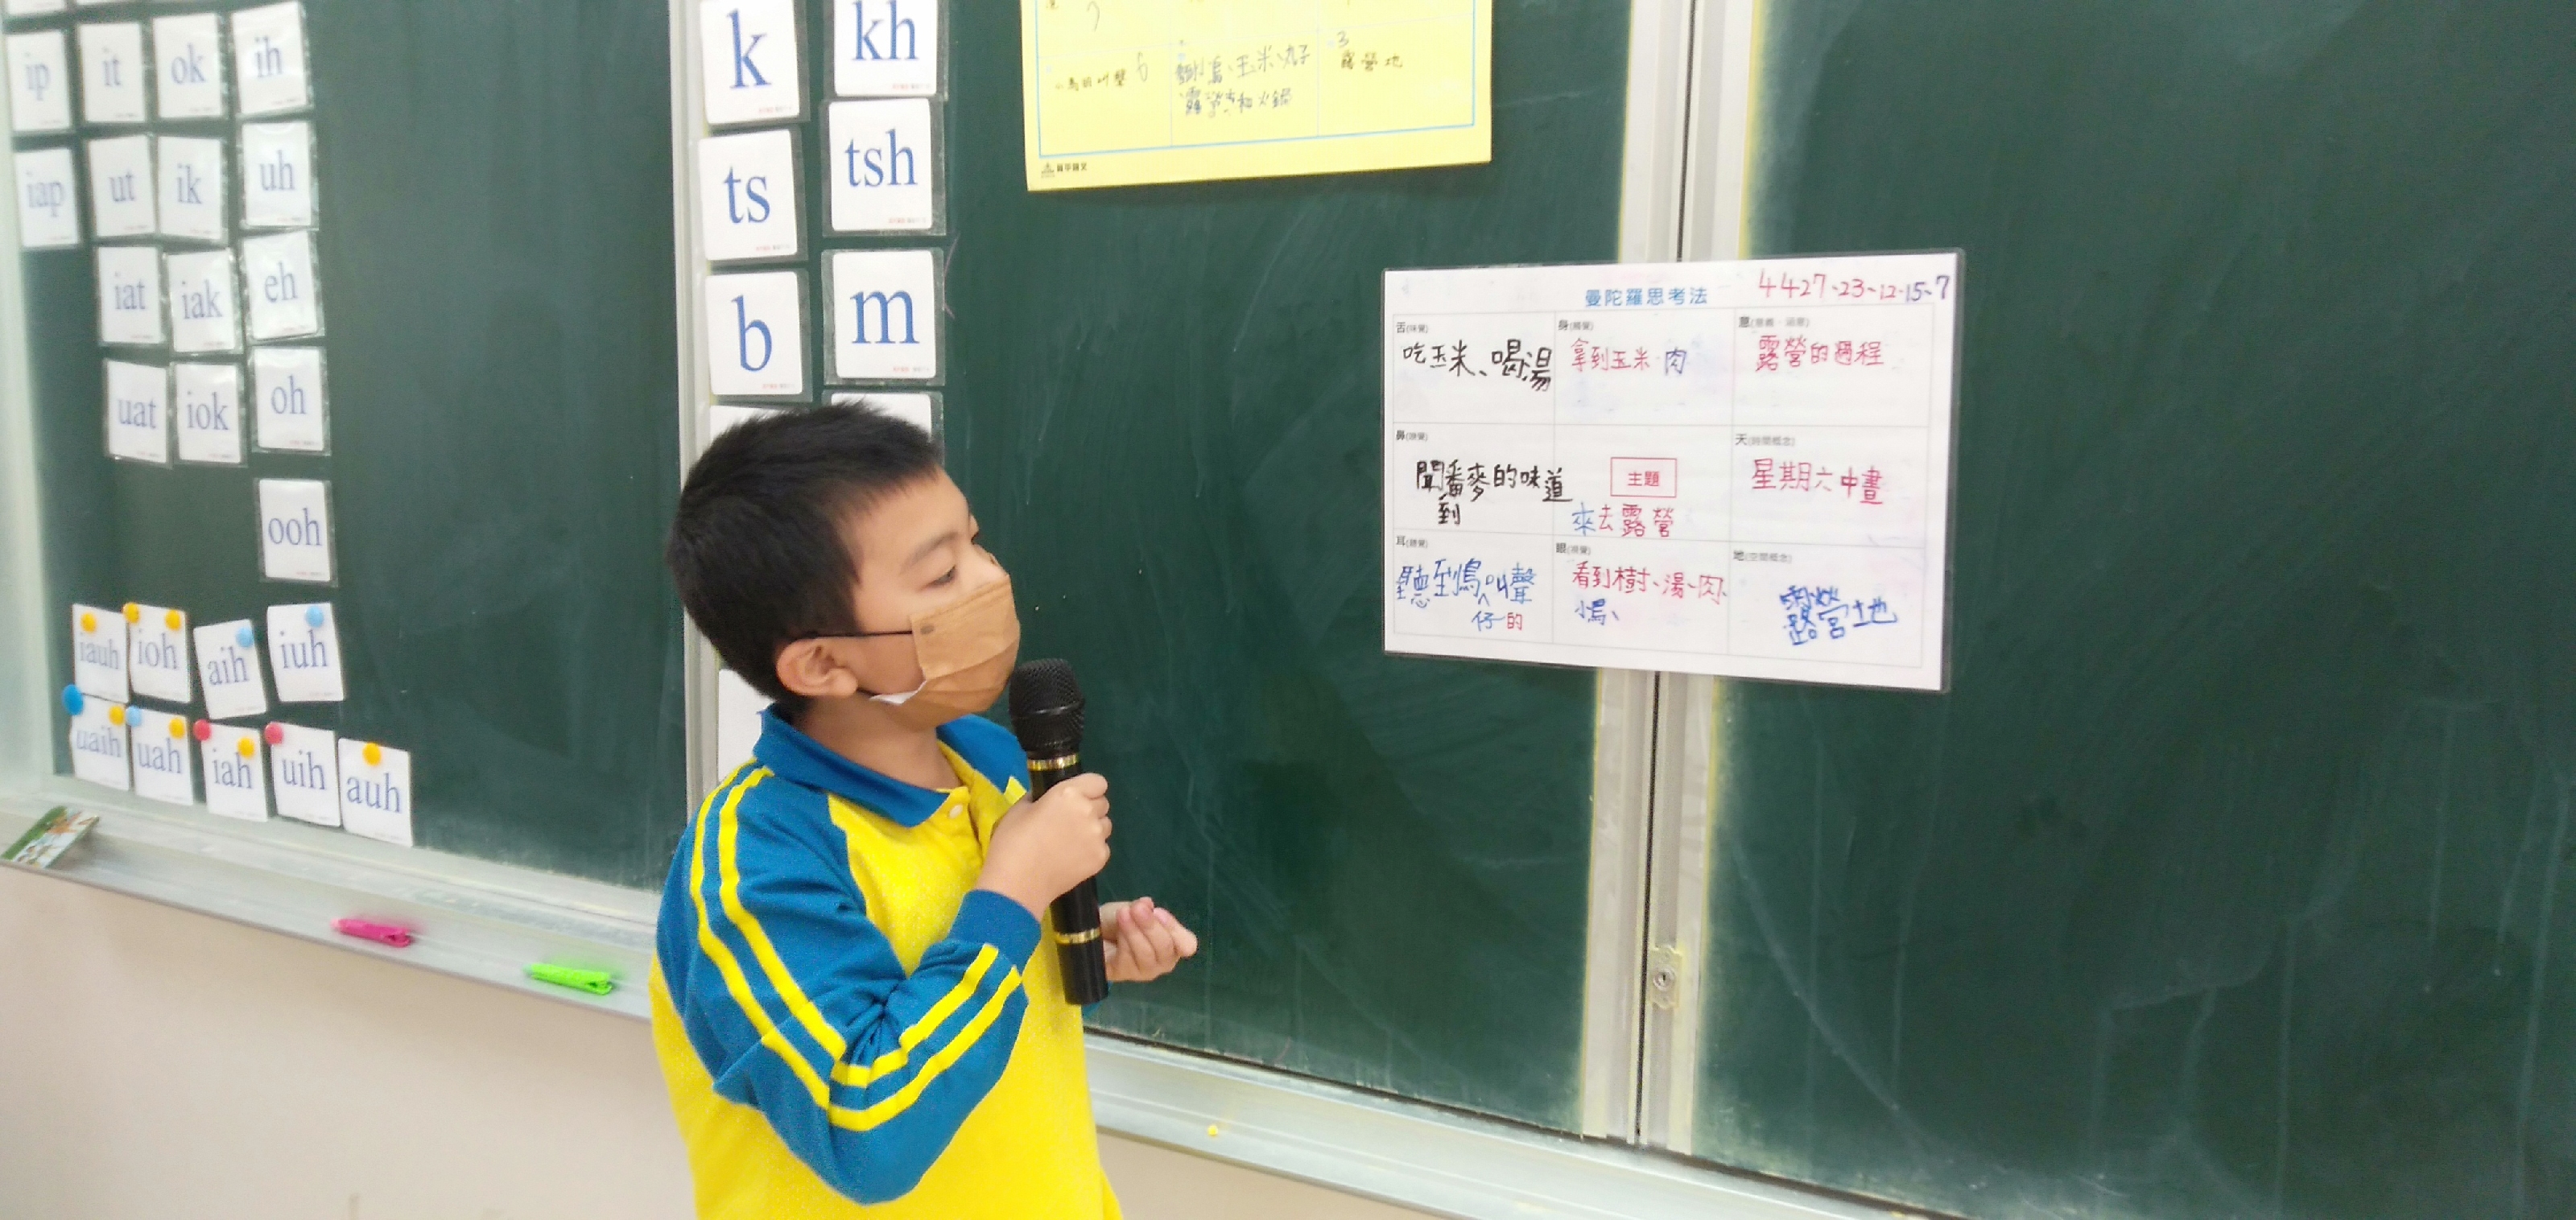 ip it ok ih
iap ut ik uh
iat iak eh
uat iok oh
ooh
iauh ioh aih iuh
uaih uah iah uih auh
k kh
ts tsh
b m
小鳥的叫聲 6
玉米、丸子
和火鍋
3
露營地
曼陀羅思考法
4427、23、12、15、7
舌(味覺)
吃玉米、喝湯
身(觸覺)
拿到玉米、肉
意(意義、涵意)
露營的過程
鼻(嗅覺)
聞番麥的味道
到
主題
來去露營
天(時間概念)
星期六中晝
耳(聽覺)
聽到鳥叫聲
仔的
眼(視覺)
看到樹、湯、肉、
小鳥、
地(空間概念)
露營地